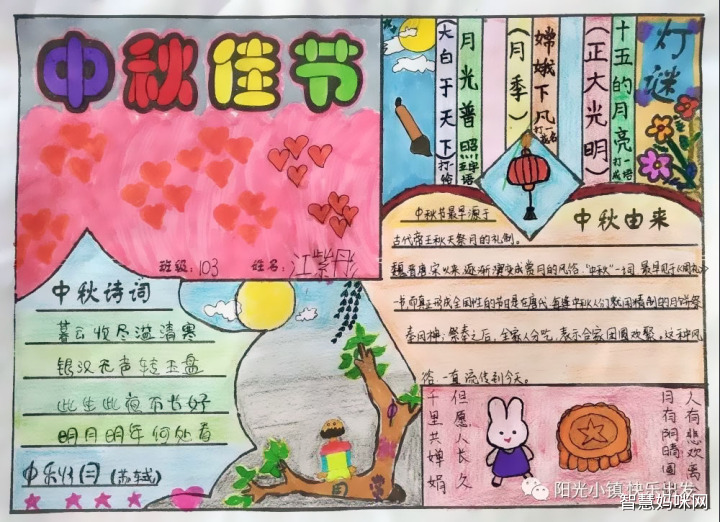 中秋佳节
班级：103 姓名：江紫彤
灯谜
十五的月亮
打一成语
（正大光明）
嫦娥下凡
打一花名
（月季）
月光普照
大白于天下
中秋诗词
暮云收尽溢清寒
银汉无声转玉盘
此生此夜不长好
明月明年何处看
中秋月（苏轼）
中秋由来
中秋节最早源于
古代帝王秋天祭月的礼制。
魏晋唐宋以来，逐渐演变成赏月的风俗，“中秋”一词，最早见于《周礼》
一书，而真正形成全国性的节日是在唐代，每逢中秋人们
奉月神，祭奉之后，全家人分吃，表示合家团圆欢聚。这种风
俗一直流传到今天。
人有悲欢离
月有阴晴圆
但愿人长久
千里共婵娟
阳光小镇快乐出发
智慧妈咪网